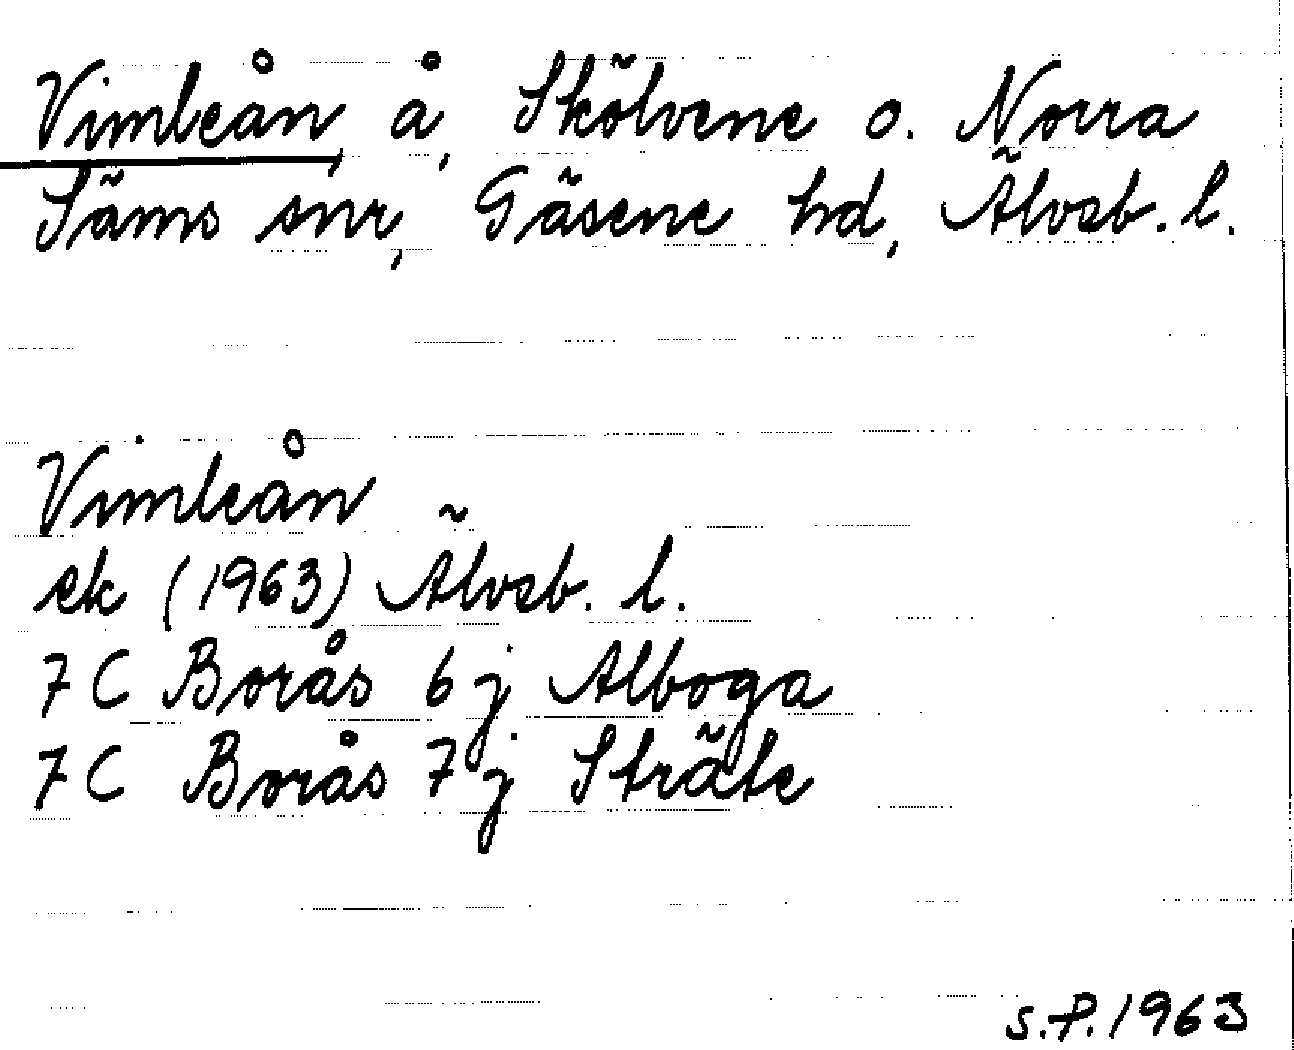 Vimleån, å, Skölvene o. Norra
Säms snr, Gäsene hd, Älvsb. l.
Vimleån
ek (1963) Älvsb. l.
7 C Borås 6 j Alboga
7 C Borås 7 j Sträte
S.P. 1963